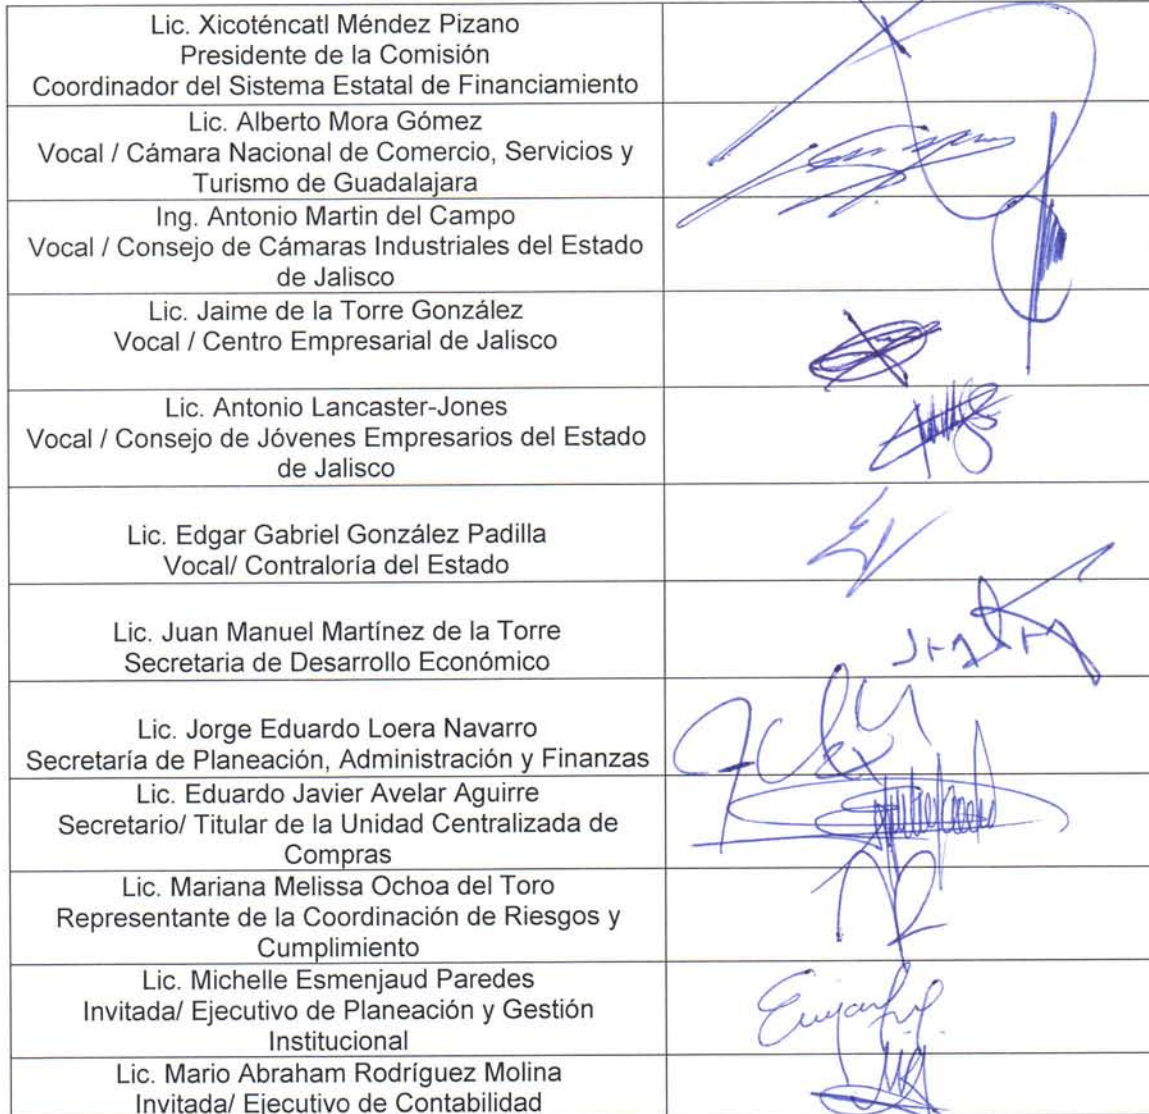 Lic. Xicoténcatl Méndez Pizano
Presidente de la Comisión
Coordinador del Sistema Estatal de Financiamiento
Lic. Alberto Mora Gómez
Vocal / Cámara Nacional de Comercio, Servicios y
Turismo de Guadalajara
Ing. Antonio Martin del Campo
Vocal / Consejo de Cámaras Industriales del Estado
de Jalisco
Lic. Jaime de la Torre González
Vocal / Centro Empresarial de Jalisco
Lic. Antonio Lancaster-Jones
Vocal / Consejo de Jóvenes Empresarios del Estado
de Jalisco
Lic. Edgar Gabriel González Padilla
Vocal/ Contraloría del Estado
Lic. Juan Manuel Martínez de la Torre
Secretaria de Desarrollo Económico
Lic. Jorge Eduardo Loera Navarro
Secretaría de Planeación, Administración y Finanzas
Lic. Eduardo Javier Avelar Aguirre
Secretario/ Titular de la Unidad Centralizada de
Compras
Lic. Mariana Melissa Ochoa del Toro
Representante de la Coordinación de Riesgos y
Cumplimiento
Lic. Michelle Esmenjaud Paredes
Invitada/ Ejecutivo de Planeación y Gestión
Institucional
Lic. Mario Abraham Rodríguez Molina
Invitada/ Ejecutivo de Contabilidad